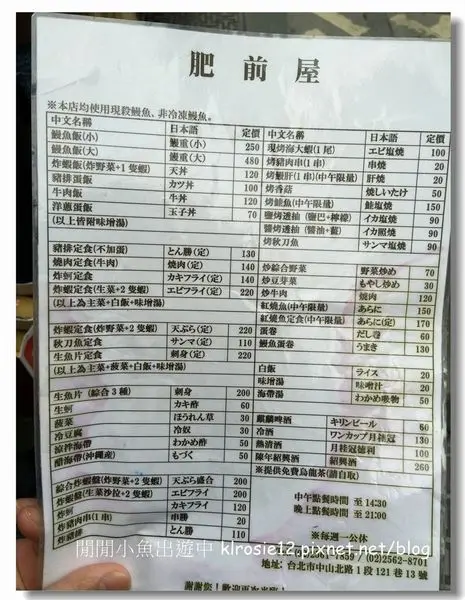 肥前屋
※本店均使用現殺鰻魚、非冷凍鰻魚。
中文名稱 日本語 定價
鰻魚飯(小) 鰻重(小) 250
鰻魚飯(大) 鰻重(大) 480
炸蝦飯(炸野菜+1隻蝦) 天丼 120
豬排蛋飯 カツ丼 100
牛肉飯 牛丼 120
洋蔥蛋飯 玉子丼 70
(以上皆附味增湯)
豬排定食(不加蛋) とん勝(定) 130
燒肉定食(牛肉) 燒肉(定) 140
炸蚵定食 カキフライ(定) 140
炸蝦定食(生菜+2隻蝦) エビフライ(定) 200
(以上為主菜+白飯+味增湯)
炸蝦定食(炸野菜+2隻蝦) 天ぷら(定) 220
秋刀魚定食 サンマ(定) 110
生魚片定食 刺身(定) 220
(以上為主菜+菠菜+白飯+味增湯)
生魚片(綜合3種) 刺身 200
生蚵 カキ酢 60
菠菜 ほうれん草 30
冷豆腐 冷奴 30
涼拌海帶 わかめ酢 50
醋海帶(沖繩產) もづく 50
綜合炸蝦盤(炸野菜+2隻蝦) 天ぷら盛合 200
炸蝦盤(生菜沙拉+2隻蝦) エビフライ 200
炸蚵 カキフライ 120
炸豬肉串(1串) 串勝 20
炸豬排 とん勝 110
中文名稱 日本語 定價
現烤海大蝦(1尾) エビ塩燒 100
烤豬肉串(1串) 串燒 20
烤鰻肝(1串)(中午限量) 肝燒 20
烤香菇 燒しいたけ 50
烤鮭魚(中午限量) 鮭塩燒 150
鹽烤透抽(鹽巴+檸檬) イカ塩燒 90
醬烤透抽(醬油+薑) イカ照燒 90
烤秋刀魚 サンマ塩燒 90
炒綜合野菜 野菜炒め 70
炒豆芽菜 もやし炒め 30
炒牛肉 燒肉 120
紅燒魚(中午限量) あらに 150
紅燒魚定食(中午限量) あらに(定) 170
蛋卷 だし卷 60
鰻魚蛋卷 うまき 130
白飯 ライス 20
味增湯 味噌汁 20
海帶湯 わかめ吸物 50
麒麟啤酒 キリンビール 60
冷酒 ワンカップ月桂冠 130
熱清酒 月桂冠德利 100
陳年紹興酒 紹興酒 260
※提供免費烏龍茶(請自取)
中午點餐時間 至 14:30
晚上點餐時間 至 21:00
※每週一公休
(02)2561-7859 / (02)2562-8701
地址: 台北市中山北路1段121巷13號
謝謝您!歡迎再次光臨!
閒閒小魚出遊中 klrosie12.pixnet.net/blog